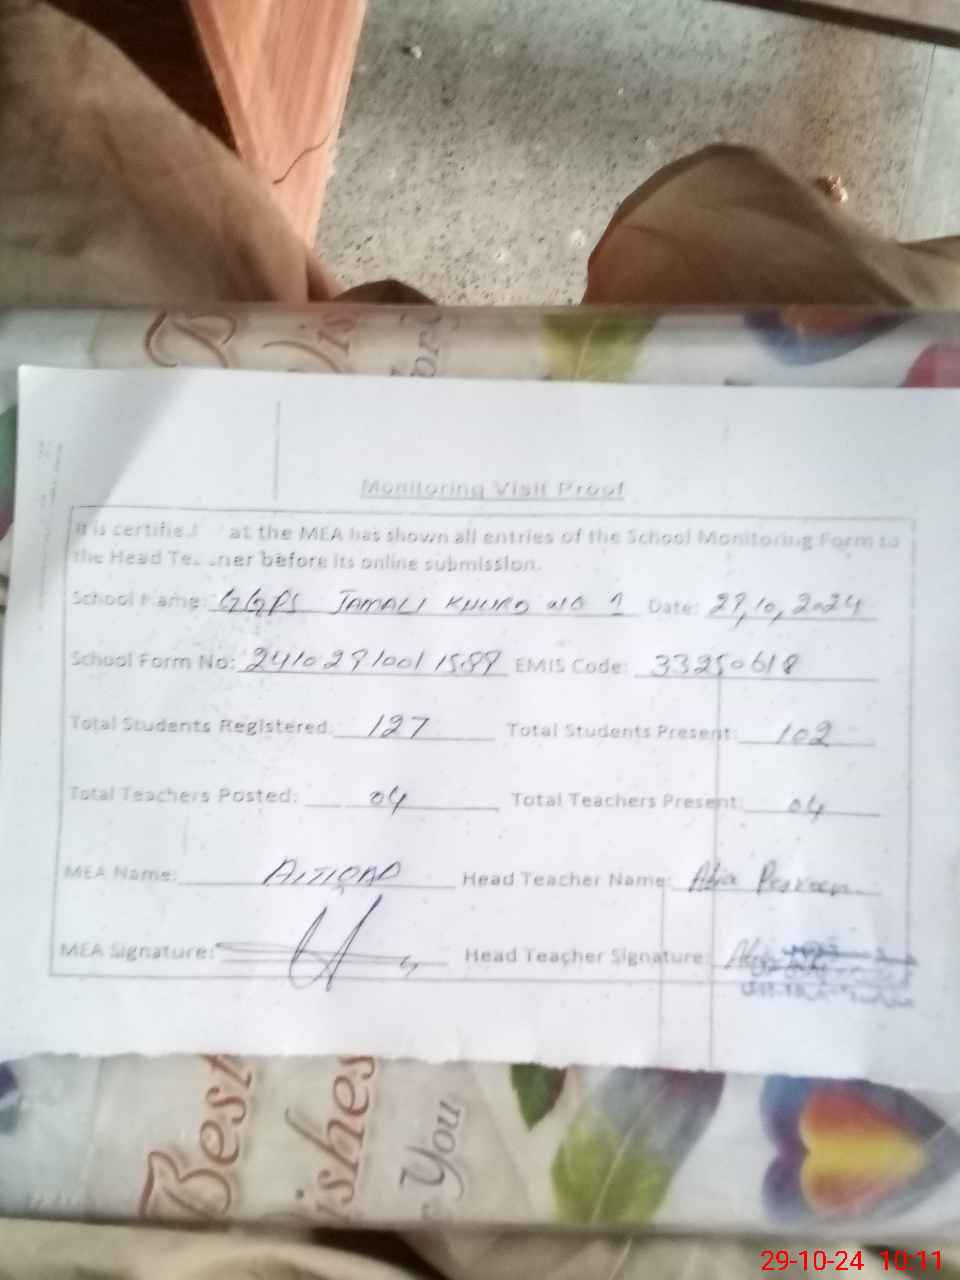 Best
ishes
for
Monitoring Visit Proof
It is certified at the MEA has shown all entries of the School Monitoring Form to
the Head Teacher before its online submission.
School Name: GGPS JAMALI KHURD Date: 29,10,2024
School Form No: EMIS Code: 33250618
Total Students Registered: 127 Total Students Present: 102
Total Teachers Posted: 04 Total Teachers Present: 04
MEA Name: Head Teacher Name:
MEA Signature: Head Teacher Signature:
Best
ishes
You
29-10-24 10:11